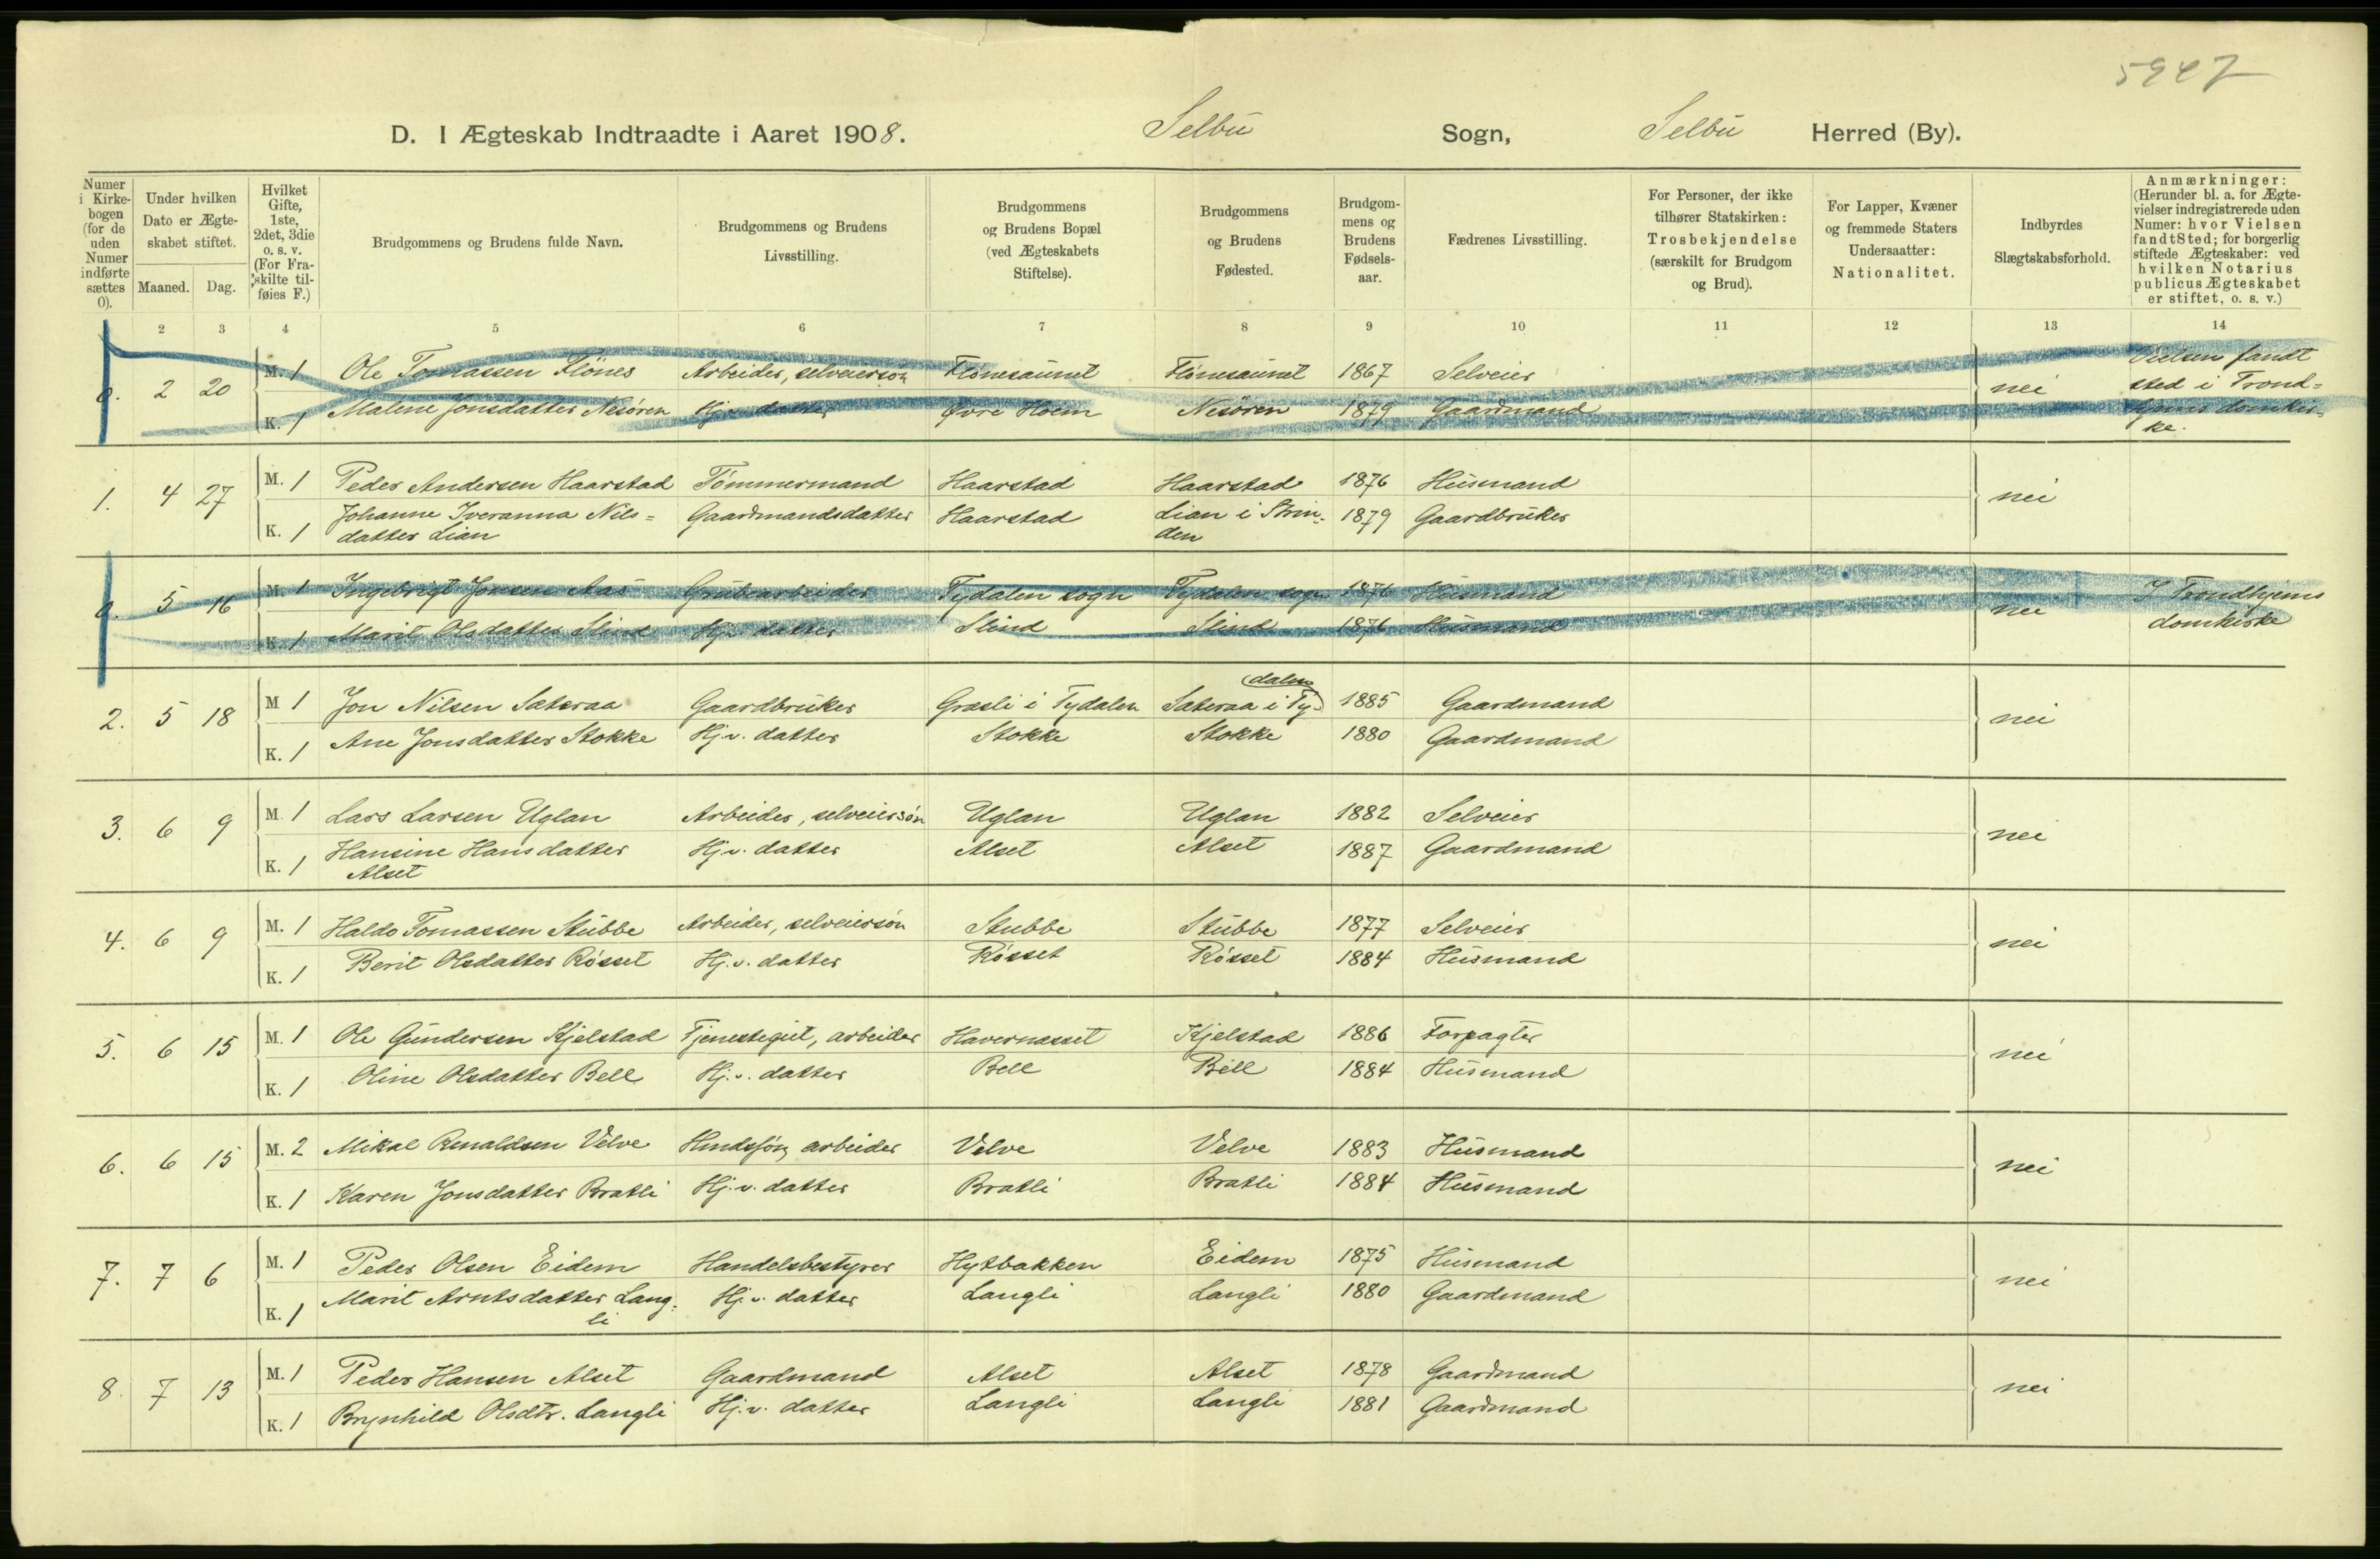 5947
D. I Ægteskab Indtraadte i Aaret 1908. Selbu Sogn, Selbu Herred (By).
Numer i Kirkebogen (for de uden Numer indførte sættes 0).
Under hvilken Dato er Ægteskabet stiftet.
Maaned. Dag.
Hvilket Gifte, 1ste, 2det, 3die o. s. v. (For Fraskilte tilføies F.)
Brudgommens og Brudens fulde Navn.
Brudgommens og Brudens Livsstilling.
Brudgommens og Brudens Bopæl (ved Ægteskabets Stiftelse).
Brudgommens og Brudens Fødested.
Brudgommens og Brudens Fødselsaar.
Fædrenes Livsstilling.
For Personer, der ikke tilhører Statskirken: Trosbekjendelse (særskilt for Brudgom og Brud).
For Lapper, Kvæner og fremmede Staters Undersaatter: Nationalitet.
Indbyrdes Slægtskabsforhold.
Anmærkninger: (Herunder bl. a. for Ægtevielser indregistrerede uden Numer: hvor Vielsen fandt Sted; for borgerlig stiftede Ægteskaber: ved hvilken Notarius publicus Ægteskabet er stiftet, o. s. v.)
2 3 4 5 6 7 8 9 10 11 12 13 14
0. 2 20 M. 1 Ole Tomassen Flönes Arbeider, selveiersøn Flönesaunet Flönesaunet 1867 Selveier nei Vielsen fandt
sted i Trond=
K. 1 Malene Jonsdatter Nesören Hj.v. datter Øvre Hoem Nesören 1879 Gaardmand hjems domkir=
ke.
1. 4 27 M. 1 Peder Andersen Haarstad Tömmermand Haarstad Haarstad 1876 Husmand nei
K. 1 Johanne Iveranna Nils= Gaardmandsdatter Haarstad Lian i Strin= 1879 Gaardbruker
datter Lian den
0. 5 16 M. 1 Ingebrigt Jonsen Aas Grubearbeider Tydalen sogn Tydalen sogn 1876 Husmand nei I Trondhjems
K. 1 Marit Olsdatter Slind Hj.v. datter Slind Slind 1876 Husmand domkirke
2. 5 18 M 1 Jon Nilsen Sæteraa Gaardbruker Græsli i Tydalen Sæteraa i Ty- 1885 Gaardmand nei
dalen
K. 1 Ane Jonsdatter Stokke Hj.v. datter Stokke Stokke 1880 Gaardmand
3. 6 9 M. 1 Lars Larsen Uglan Arbeider, selveiersön Uglan Uglan 1882 Selveier nei
K. 1 Hansine Hansdatter Hj.v. datter Alset Alset 1887 Gaardmand
Alset
4. 6 9 M. 1 Haldo Tomassen Stubbe Arbeider, selveiersön Stubbe Stubbe 1877 Selveier nei
K. 1 Berit Olsdatter Rösset Hj.v. datter Rösset Rösset 1884 Husmand
5. 6 15 M. 1 Ole Gundersen Kjelstad Tjenestegut, arbeider Havernæsset Kjelstad 1886 Forpagter nei
K. 1 Oline Olsdatter Bell Hj.v. datter Bell Bell 1884 Husmand
6. 6 15 M. 2 Mikal Renaldsen Velve arbeider Velve Velve 1883 Husmand nei
K. 1 Karen Jonsdatter Bratli Hj.v. datter Bratli Bratli 1884 Husmand
7. 7 6 M. 1 Peder Olsen Eidem Handelsbestyrer Hytbakken Eidem 1875 Husmand nei
K. 1 Marit Arntsdatter Lang= Hj.v. datter Langli Langli 1880 Gaardmand
li
8. 7 13 M. 1 Peder Hansen Alset Gaardmand Alset Alset 1878 Gaardmand nei
K. 1 Brynhild Olsdtr. Langli Hj.v. datter Langli Langli 1881 Gaardmand